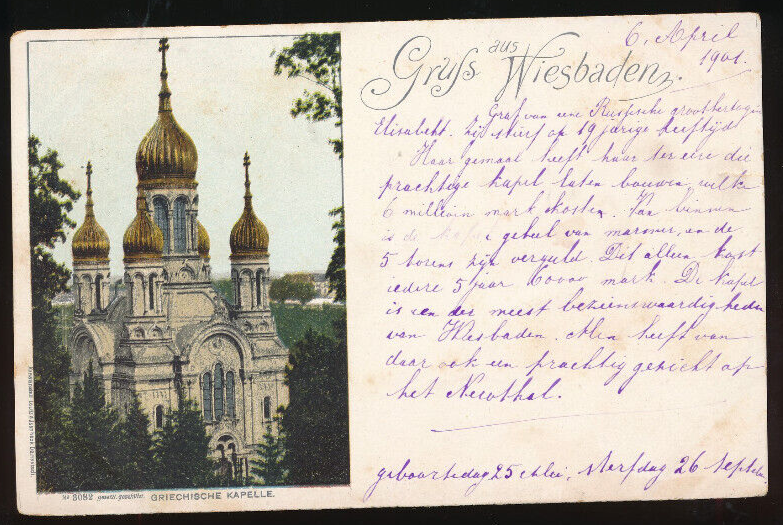 6, April
1901.
Gruß aus Wiesbaden.
Graf van eene Russische groothertogin
Elisabeth. Zij stierf op 19 jarige leeftijd
Haar gemaal heeft haar ter eere die
prachtige kapel laten bouwen, welke
6 millioen mark kosten. Van binnen
is de kapel geheel van marmer, en de
5 torens zijn verguld. Dit alleen kost
iedere 5 jaar 60000 mark. De kapel
is een der meest bezienswaardigheden
van Wiesbaden. Men heeft van
daar ook een prachtig gezicht op
het Nerothal.
geboortedag 25 Mei, sterfdag 26 Septem
No 3082 gesetzl. geschützt. GRIECHISCHE KAPELLE.